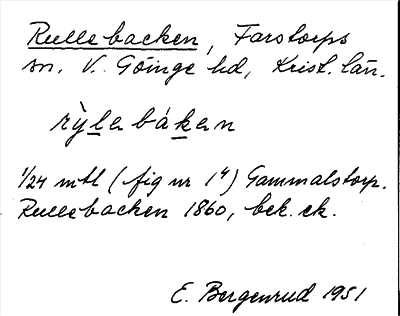 Rullebacken, Farstorps
sn. V. Göinge hd, Krist. län.
rỳlebáken
1/24 mtl (fig nr 1⁴) Gammalstorp.
Rullebacken 1860, bek. ek.
E. Borgenrud 1951